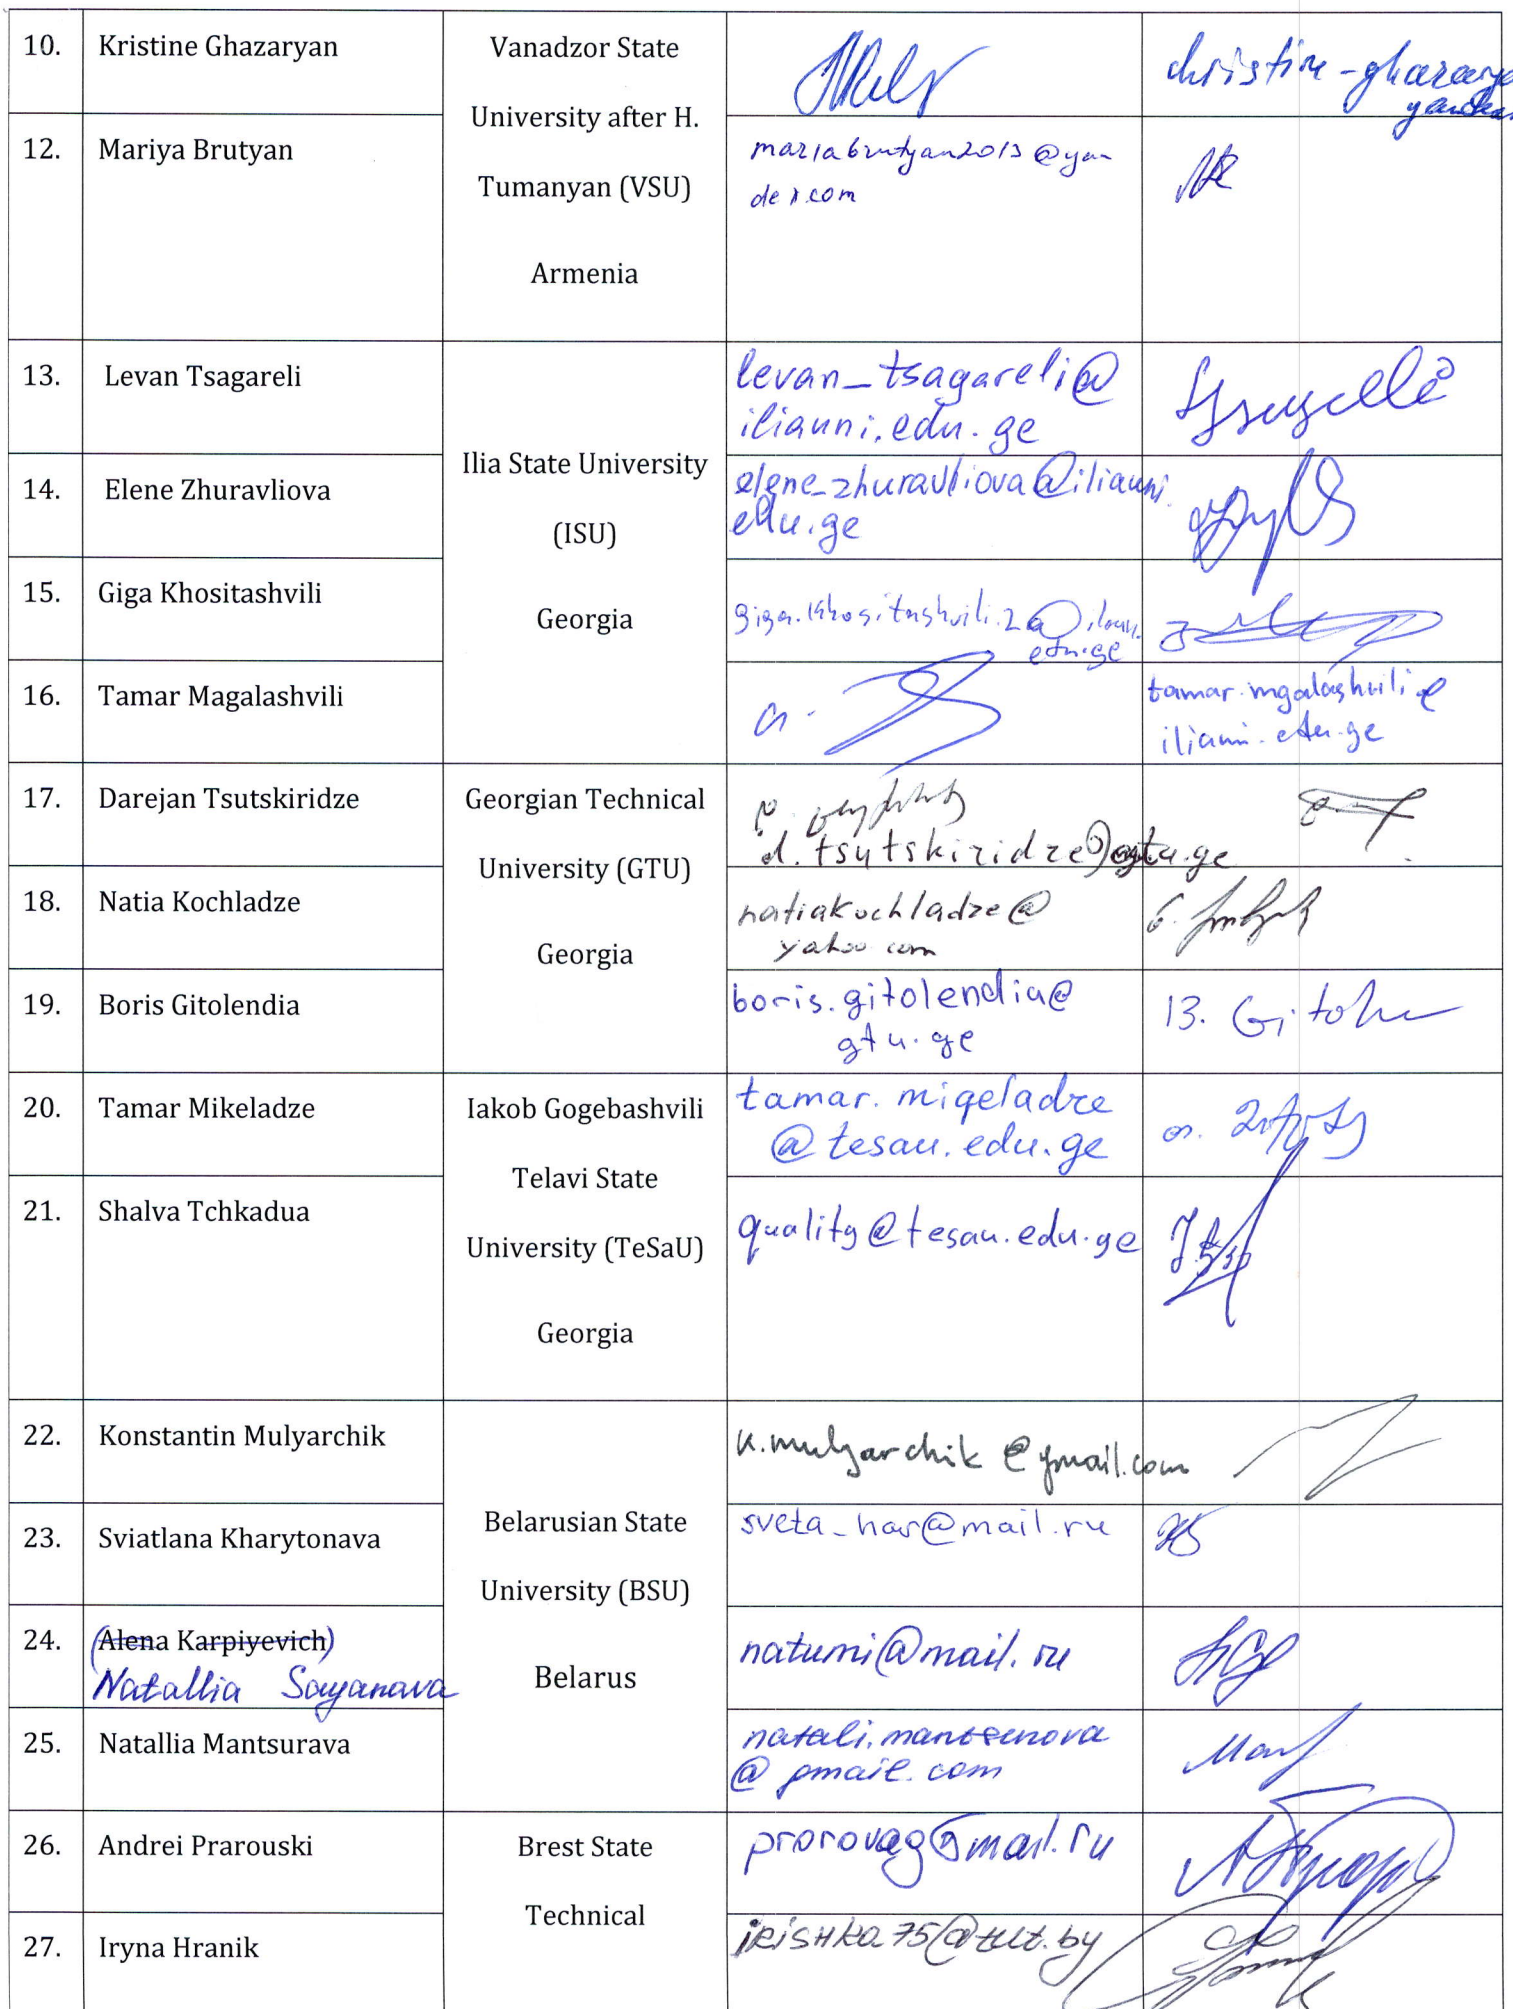 10.
Kristine Ghazaryan
Vanadzor State
University after H.
Tumanyan (VSU)
Armenia
12.
Mariya Brutyan
mariabrutyan2013@yan-
dex.com
13.
Levan Tsagareli
Ilia State University
(ISU)
Georgia
levan_tsagareli@
iliauni.edu.ge
14.
Elene Zhuravliova
elene_zhuravliova@iliauni.
edu.ge
15.
Giga Khositashvili
giga.khositashvili.2@iliauni.
edu.ge
16.
Tamar Magalashvili
tamar.mgalashvili@
iliauni.edu.ge
17.
Darejan Tsutskiridze
Georgian Technical
University (GTU)
Georgia
d.tsutskiridze@gtu.ge
18.
Natia Kochladze
natiakochladze@
yahoo com
19.
Boris Gitolendia
boris.gitolendia@
gtu.ge
20.
Tamar Mikeladze
Iakob Gogebashvili
Telavi State
University (TeSaU)
Georgia
tamar.miqeladze
@tesau.edu.ge
21.
Shalva Tchkadua
quality@tesau.edu.ge
22.
Konstantin Mulyarchik
Belarusian State
University (BSU)
Belarus
k.mulyarchik@gmail.com
23.
Sviatlana Kharytonava
sveta_har@mail.ru
24.
(Alena Karpiyevich)
Natallia
natumi@mail.ru
25.
Natallia Mantsurava
natali.mantsurova
@gmail.com
26.
Andrei Prarouski
Brest State
Technical
prorovag@mail.ru
27.
Iryna Hranik
irishka75@tut.by